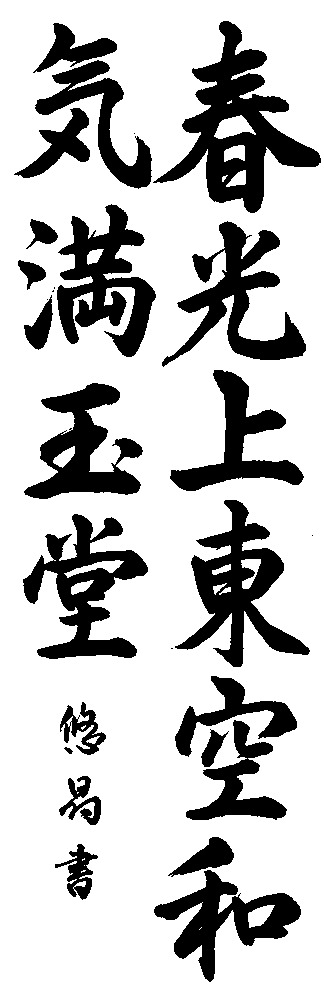 春光上東空和
気満玉堂
悠昌書